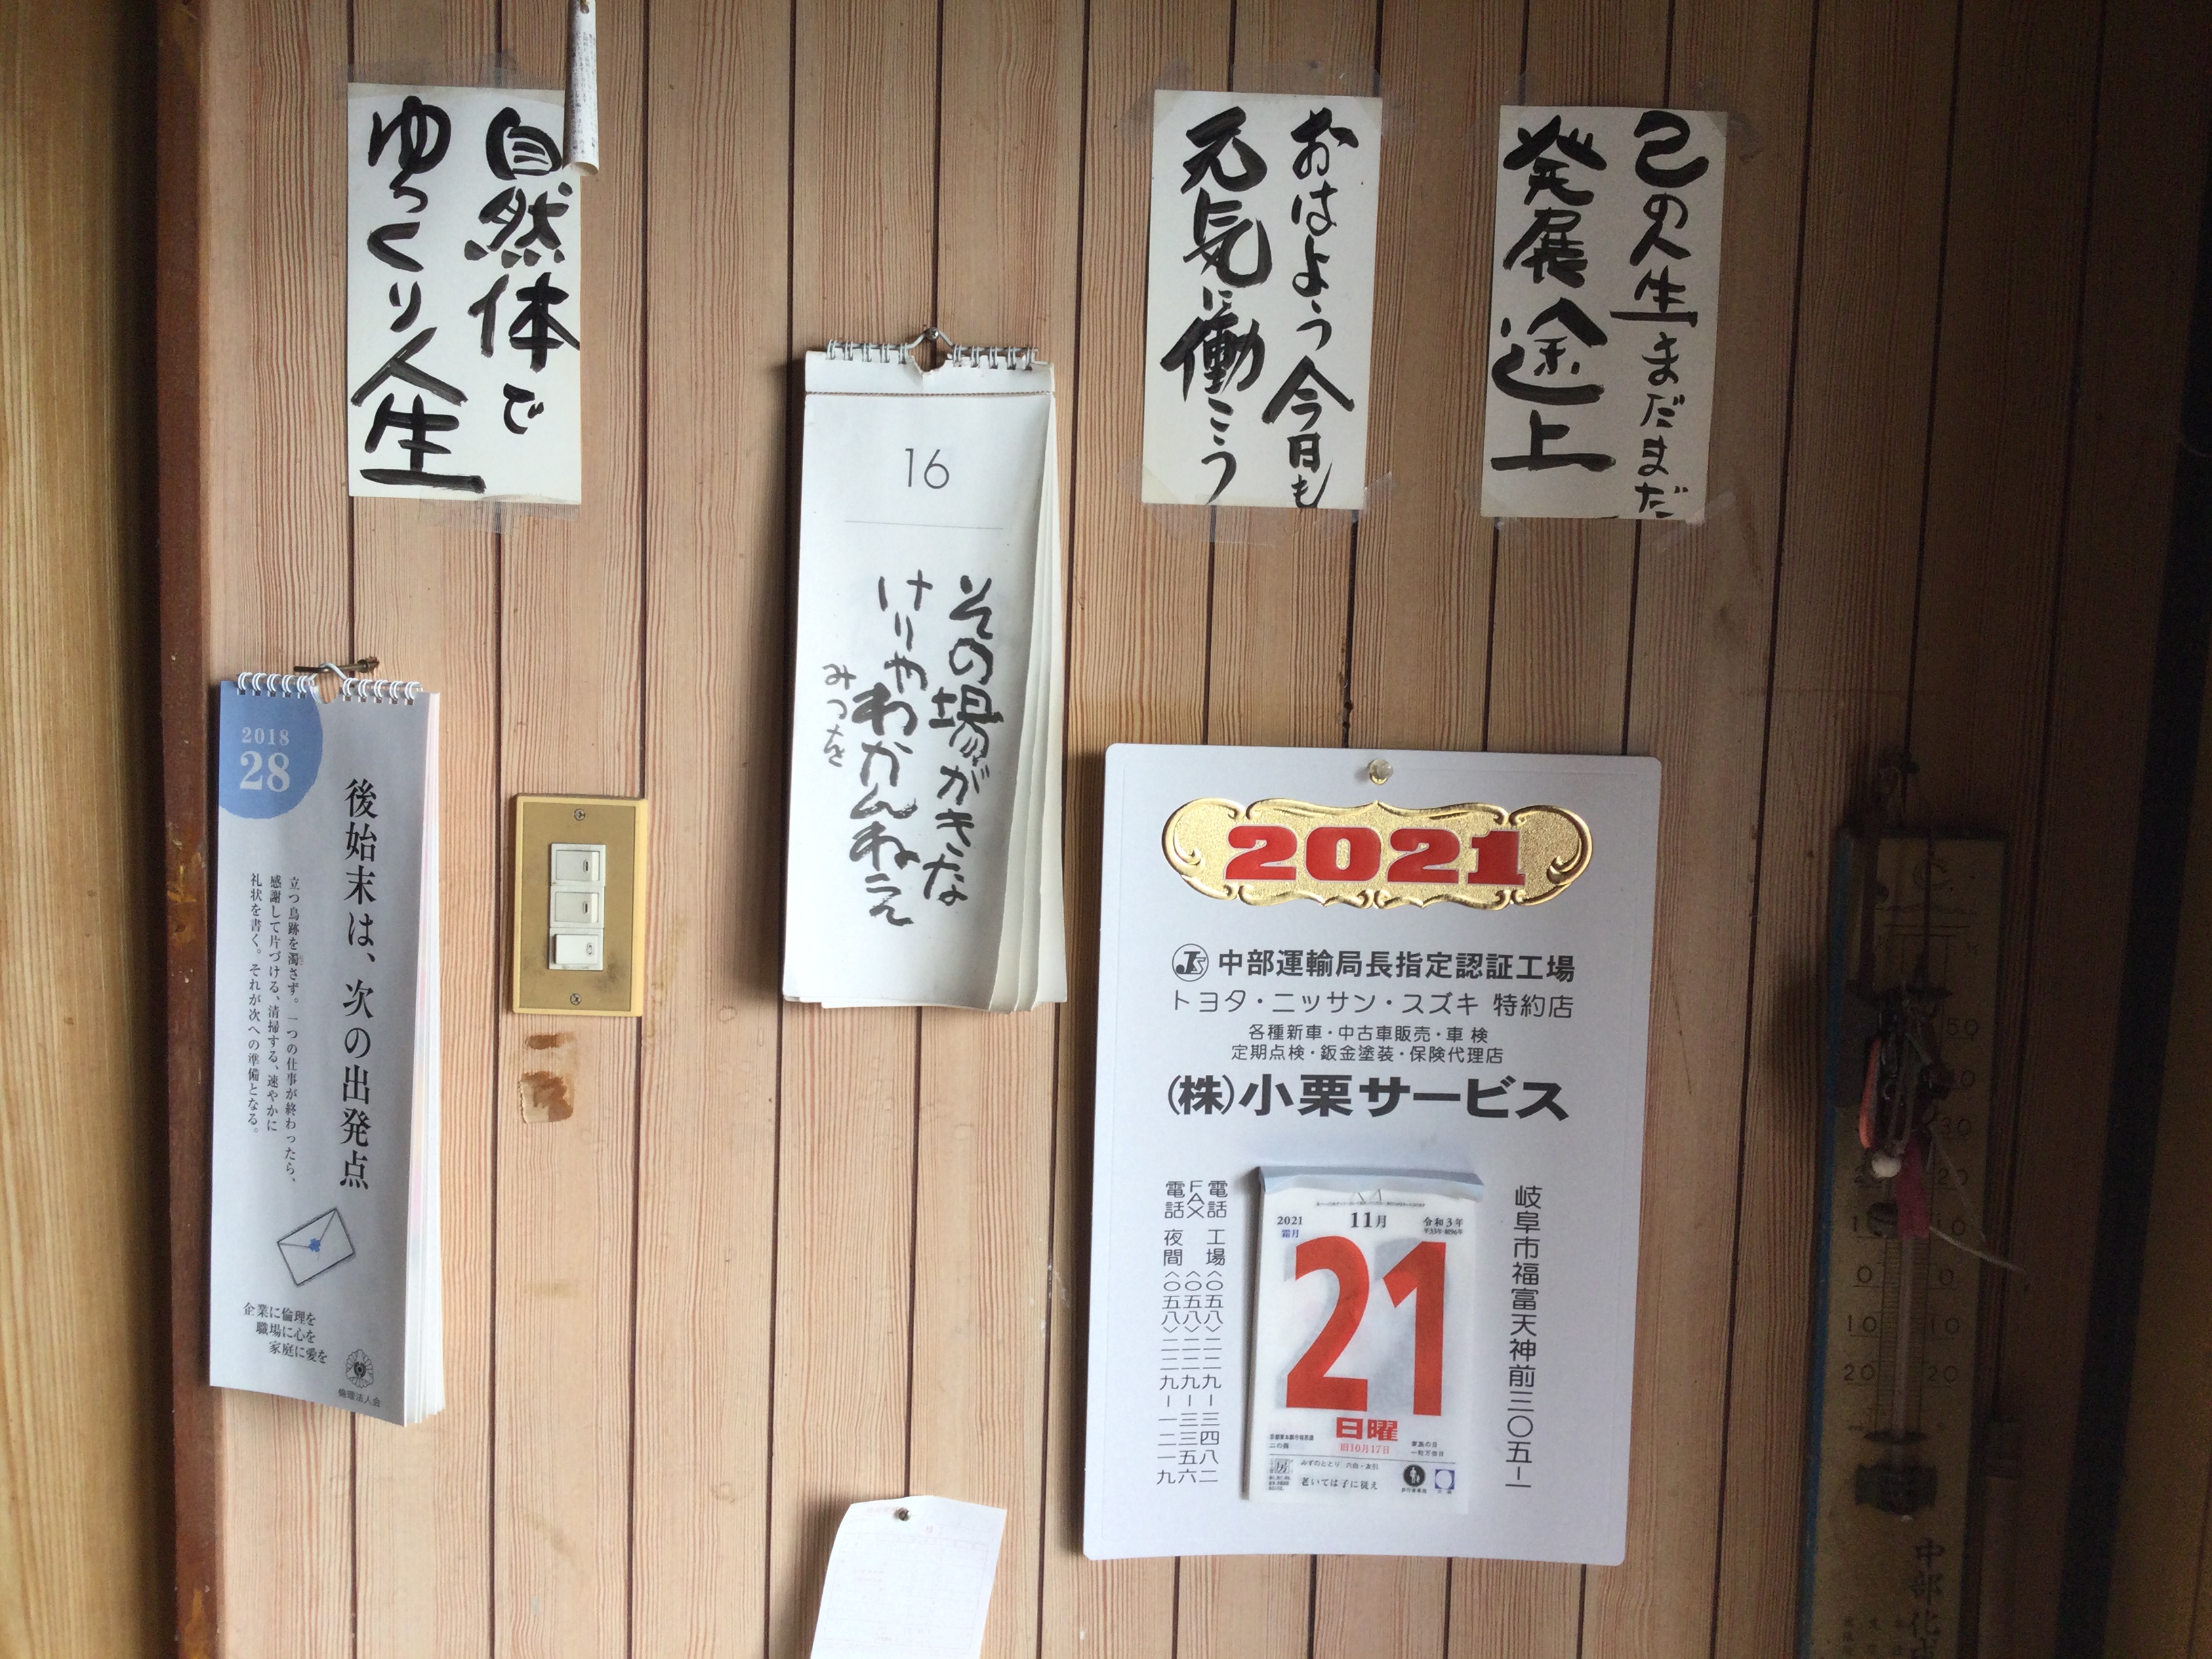 自然体で
ゆっくり人生
おはよう今日も
元気に働こう
己の人生まだまだ
発展途上
16
その場がきな
けりやわかんねえ
みつを
2018
28
後始末は、次の出発点
立つ鳥跡を濁さず。一つの仕事が終わったら、
感謝して片づける、清掃する、速やかに
礼状を書く。それが次への準備となる。
企業に倫理を
職場に心を
家庭に愛を
倫理法人会
2021
中部運輸局長指定認証工場
トヨタ・ニッサン・スズキ 特約店
各種新車・中古車販売・車検
定期点検・鈑金塗装・保険代理店
(株)小栗サービス
岐阜市福富天神前三〇五ー一
電話 工場〈〇五八〉二二九ー三四八二
FAX〈〇五八〉二二九ー三三五六
電話 夜間〈〇五八〉二二九ー一二一九
2021
霜月
11月
令和3年
21
日曜
旧10月17日
家族の日
一粒万倍日
二の酉
みずのととり 六白・友引
老いては子に従え
C
50
40
30
20 20
10 10
0 0
10 10
20 20
中部化